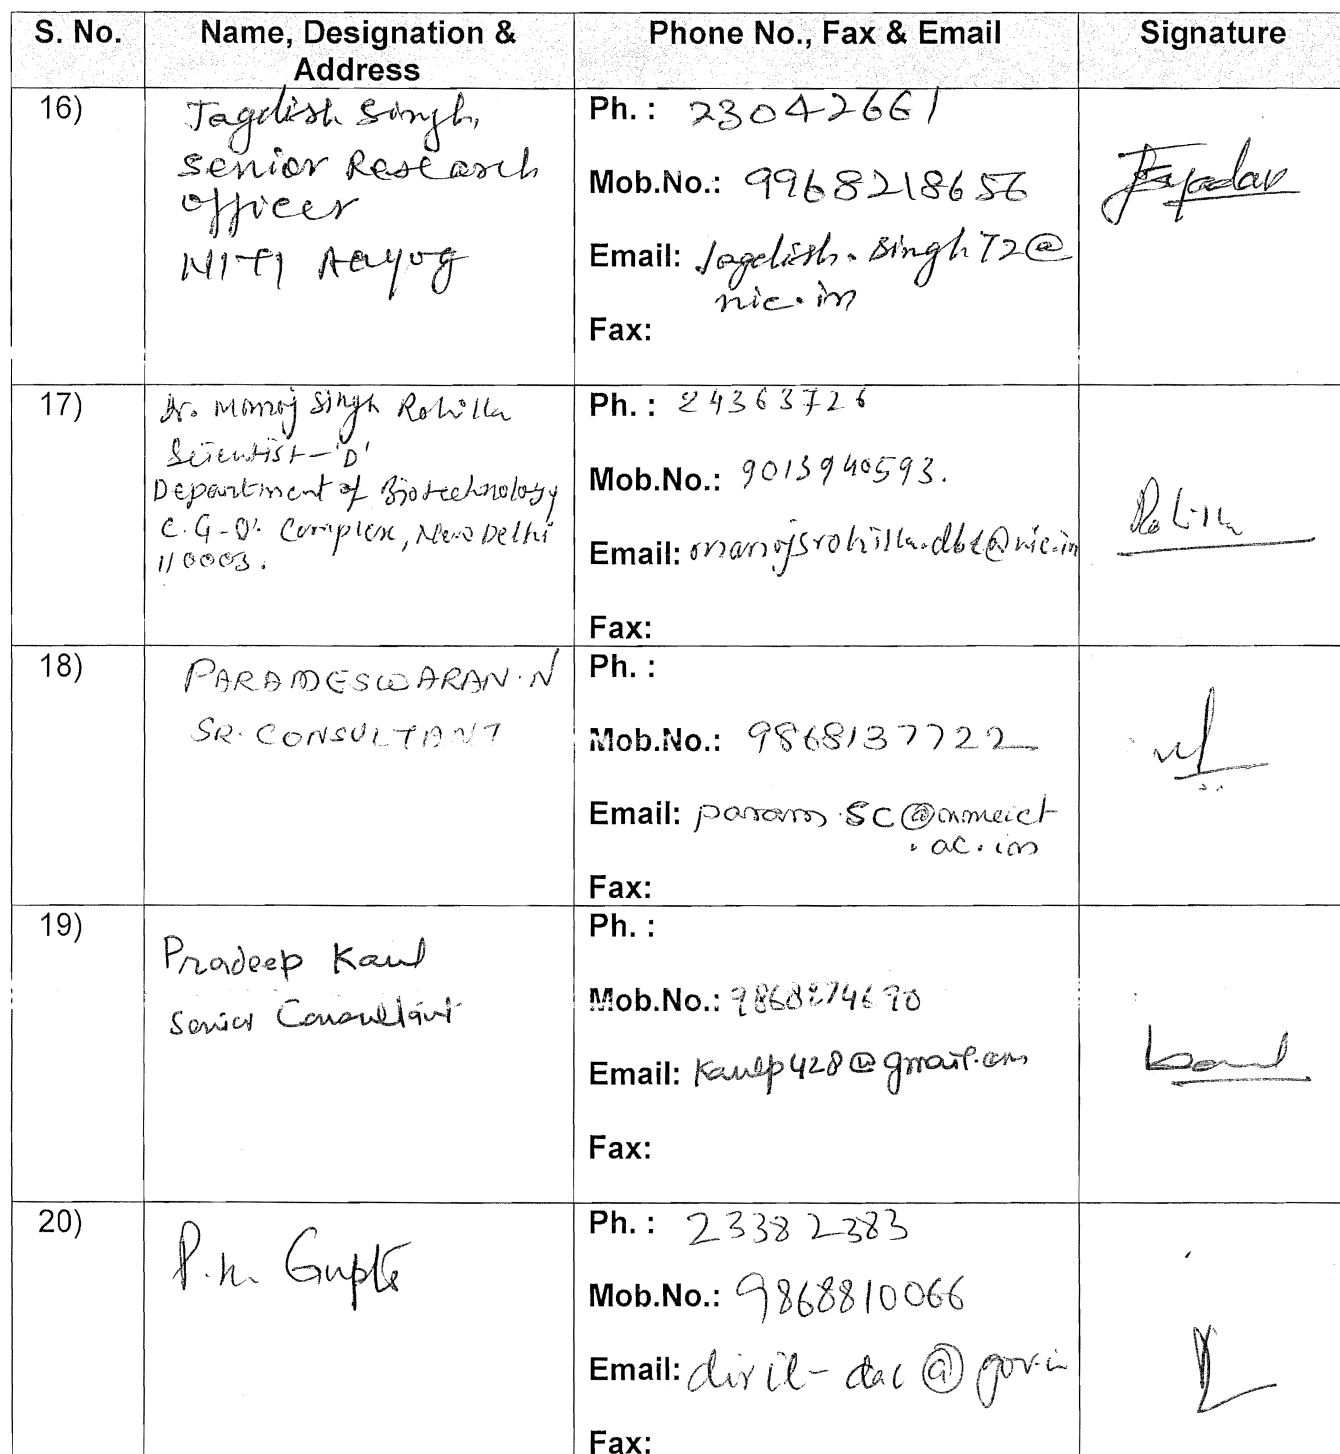 S. No. Name, Designation & Address Phone No., Fax & Email Signature
16)
Jagdish Singh,
Senior Research
Officer
NITI Aayog
Ph. : 23042661
Mob.No.: 9968218656
Email: Jagdish.singh72@
nic.in
Fax:
17)
Dr. Manoj Singh Rohilla
Scientist-'D'
Department of Biotechnology
C.G.O. Complex, New Delhi
110003.
Ph. : 24363726
Mob.No.: 9013940593.
Email: manojsrohilla.dbt@nic.in
Fax:
Rohilla
18)
PARAMESWARAN.N
SR. CONSULTANT
Ph. :
Mob.No.: 9868137722
Email: param.sc@nmeict
.ac.in
Fax:
19)
Pradeep Kaul
Senior Consultant
Ph. :
Mob.No.: 9868274690
Email: kaulp428@gmail.com
Fax:
Kaul
20)
P.K. Gupta
Ph. : 23382383
Mob.No.: 9868810066
Email: @gov.in
Fax: